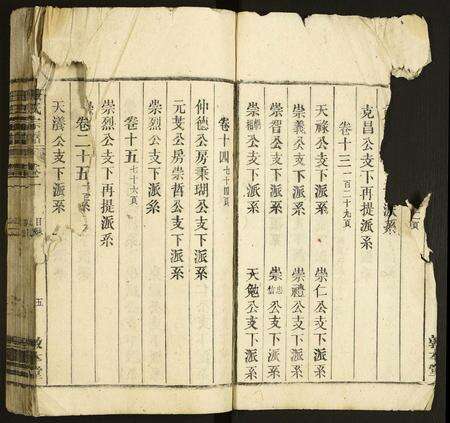 派系
頁
克昌公支下再提派系
卷十三一百二十九頁
天祿公支下派系 崇仁公支下派系
崇義公支下派系 崇禮公支下派系
崇晉公支下派系 崇忠信公支下派系
公支下派系 天勉公支下派系
敦本堂
卷十四七十四頁
仲德公房秉瑚公支下派系
元芠公房崇哲公支下派系
崇烈公支下派系
卷十五七十六頁
崇烈公支下再提派系
卷二十五
天瀁公支下派系
目錄
五
敦本堂